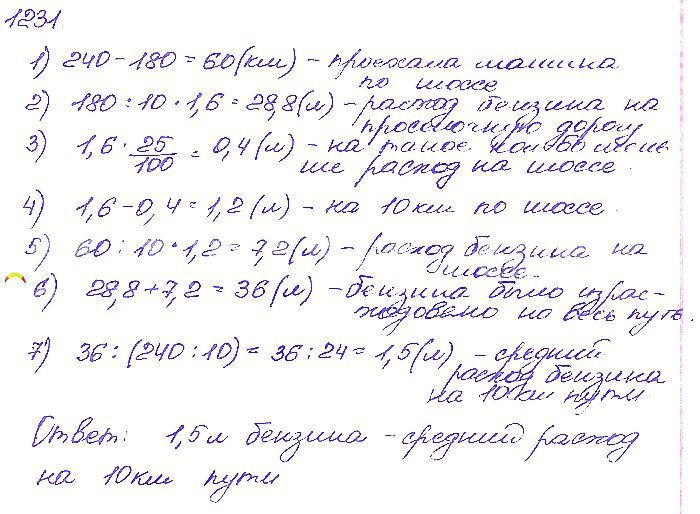 1231.
1) 240 - 180 = 60 (км) - проехала машина
по шоссе
2) 180 : 10 · 1,6 = 28,8 (л) - расход бензина на
проселочную дорогу
3) 1,6 · 25/100 = 0,4 (л) - на такое кол-во мень
ше расход на шоссе.
4) 1,6 - 0,4 = 1,2 (л) - на 10 км по шоссе.
5) 60 : 10 · 1,2 = 7,2 (л) - расход бензина на
шоссе.
6) 28,8 + 7,2 = 36 (л) - бензина было израс-
ходовено на весь путь.
7) 36 : (240 : 10) = 36 : 24 = 1,5 (л) - средний
расход бензина
на 10 км пути
Ответ: 1,5 л бензина - средний расход
на 10 км пути